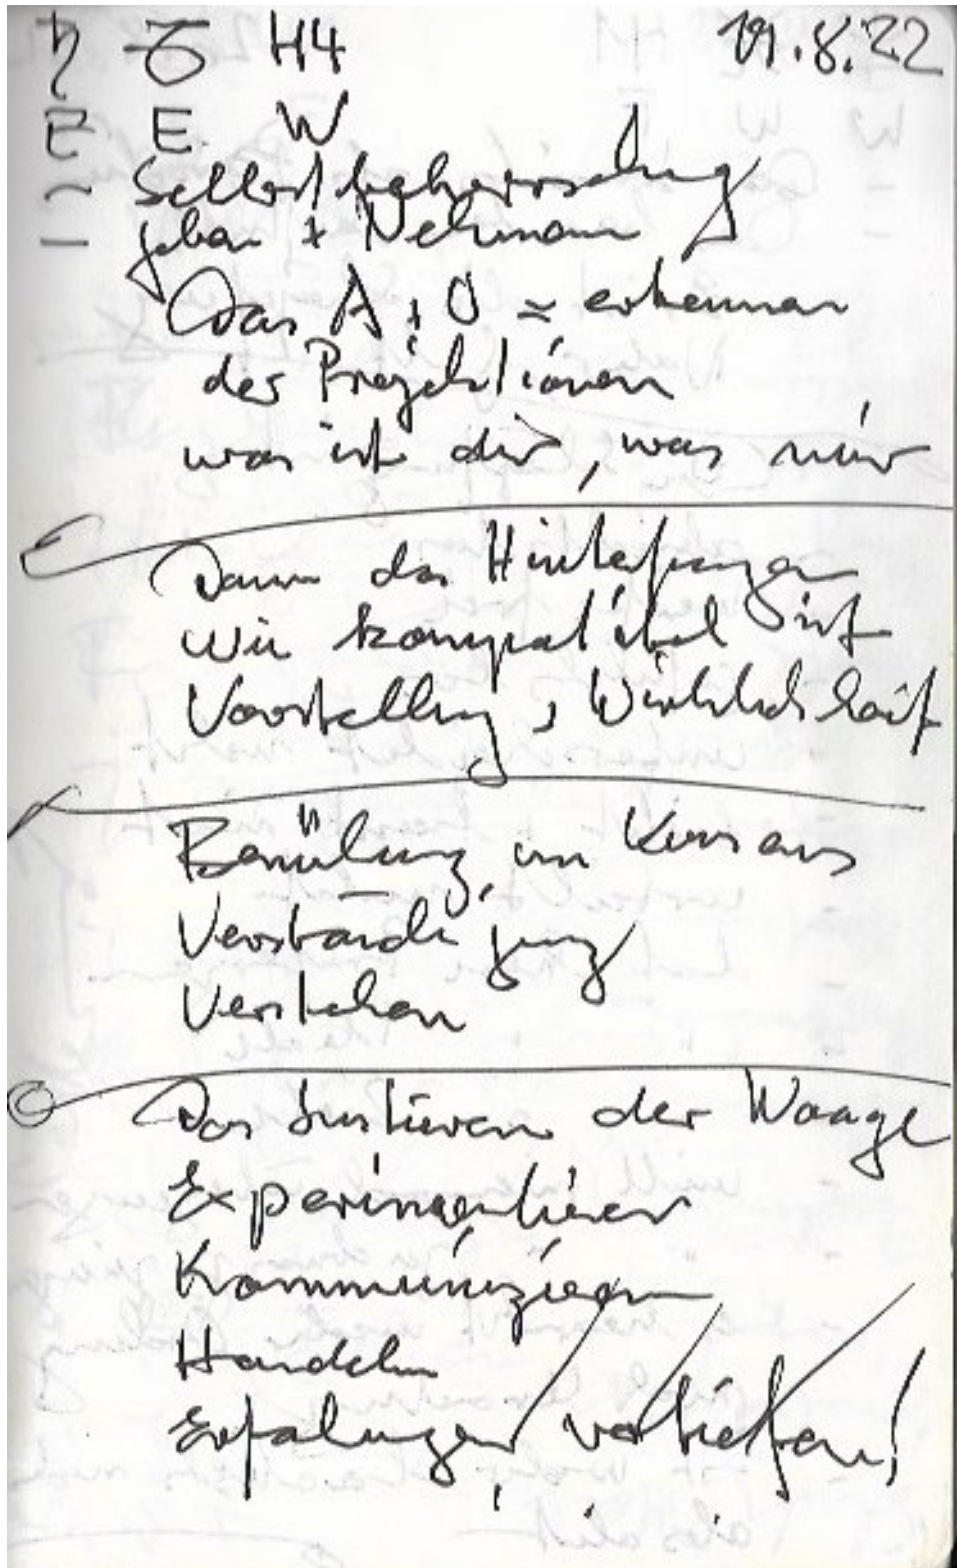 ♄ ♉ H4 19.8.22
E E W
~ Selbstbeherrschung
– geben + Nehmen
Das A + O = erkennen
der Projektionen
was ist dir, was mir
Dann das Hinterfragen
wie kompatibel ist
Vorstellung, Wirklichkeit
Bemühung um Konsens
Verständigung
Verstehen
Das Justieren der Waage
Experimentieren
Kommunizieren
Handeln
Erfahungen vertiefen!